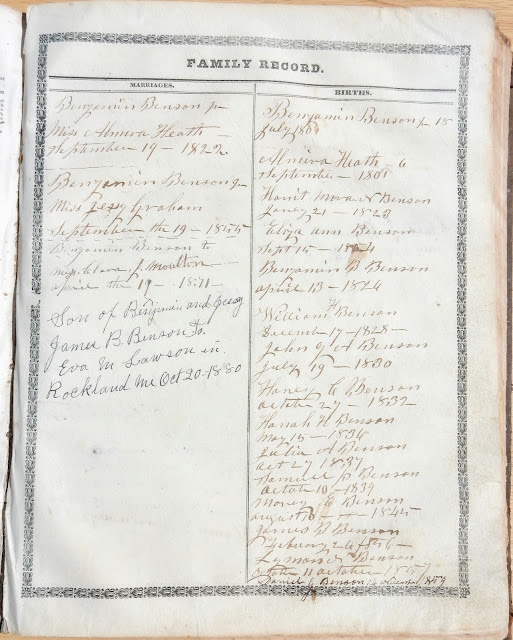 FAMILY RECORD.
MARRIAGES.
Benjamin Benson jr
Miss Almira Heath
September 19 - 1822
Benjamin Benson jr
Miss Jessy Graham
September the 19 - 1855
Benjamin Benson to
J. Moulton
april the 19 - 1871
Son of Benjamin and Jessy
James B. Benson to.
Eva M Lawson in.
Rockland Me Oct 20-1880
BIRTHS.
Benjamin Benson jr 18
July
Almira Heath 6
September - 1801
Benson
21 - 1823
Eliza ann Benson
Sept 15 - 1824
Benjamin B Benson
april 13 - 1826
William H Benson
December 17 - 1828
John A Benson
July 19 - 1830
C Benson
october 27 - 1832
Hanah H Benson
May 15 - 1834
Julia A Benson
oct 27 1837
Samuel P Benson
octobe 10 - 1839
Benson
august - 1845
James B Benson
February 26 1856
Lyman Benson
11 october 1857
Daniel Benson